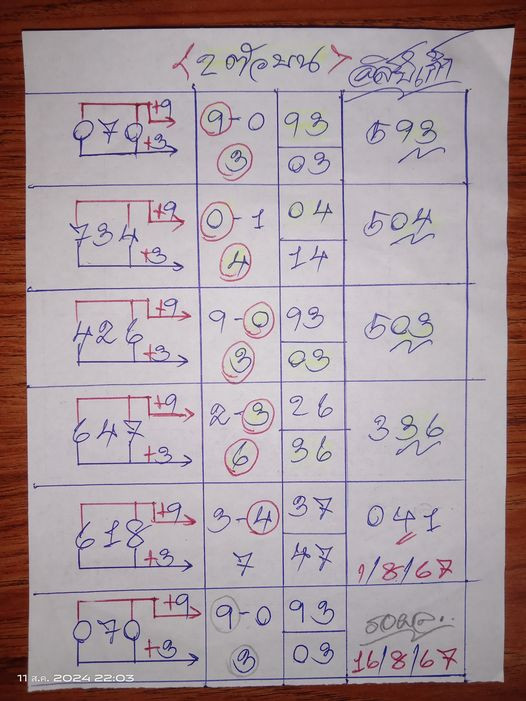 <2 ตัวบน>
070 +9 +3 9-0 3 93 03 593
734 +9 +3 0-1 4 04 14 504
426 +9 +3 9-0 3 93 03 503
647 +9 +3 2-3 6 26 36 336
618 +9 +3 3-4 7 37 47 041
1/8/67
070 +9 +3 9-0 3 93 03 รอผล..
16/8/67
11 ส.ค. 2024 22:03